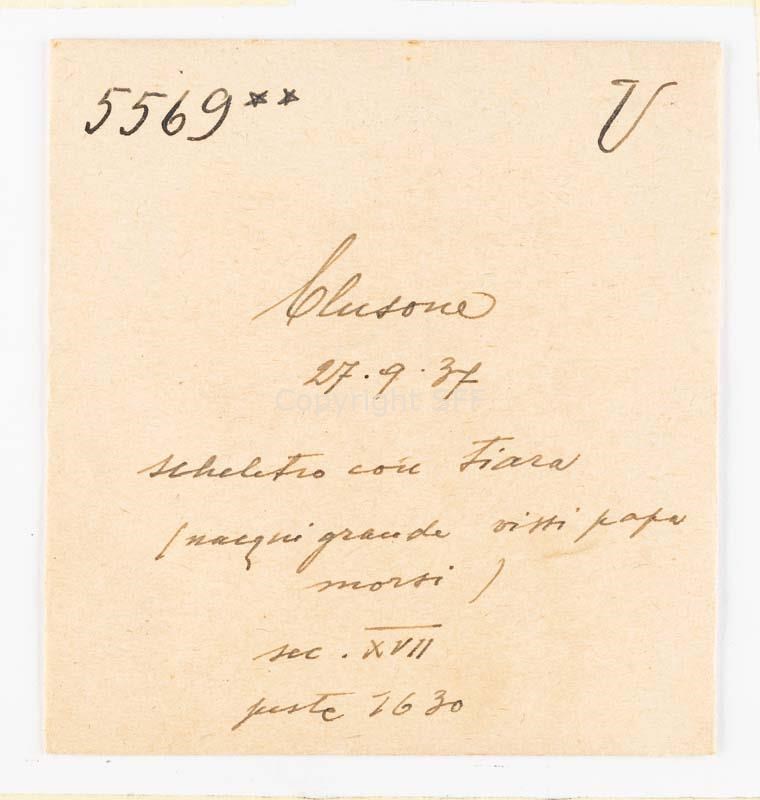 5569** V
Clusone
27.9.37
scheletro con tiara
(nacqui grande vissi papa
morsi)
sec. XVII
peste 1630
Copyright SFF